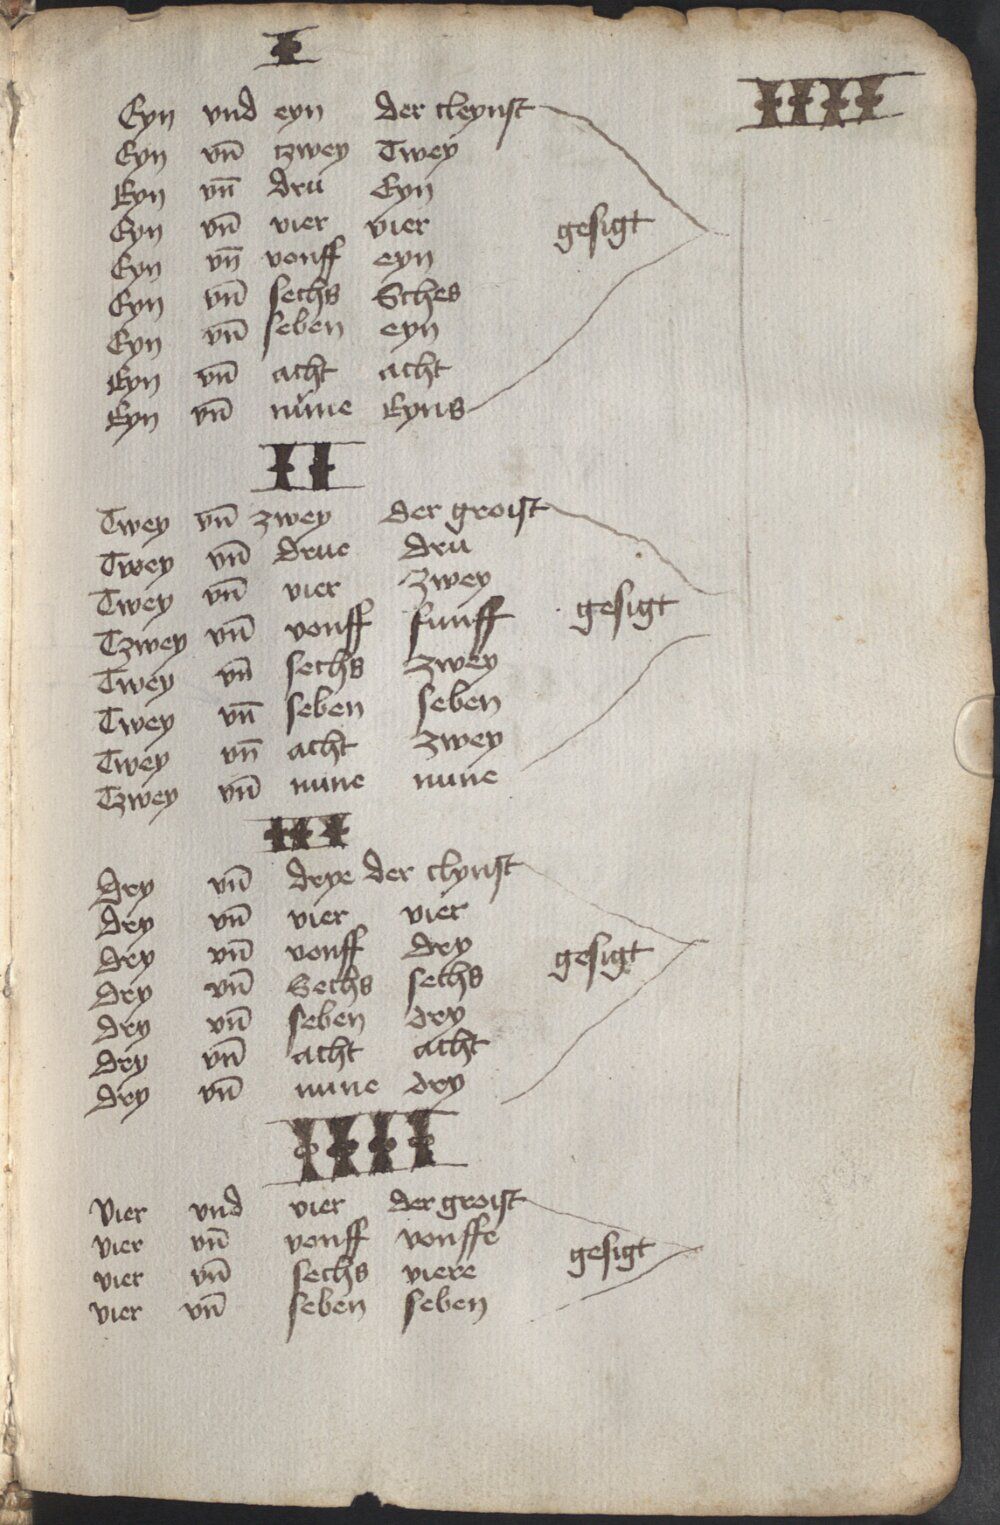 I
IIII
Eyn vnd eyn der cleynst
Eyn vn̄ tzwey Twey
Eyn vn̄ dru Eyn
Eyn vn̄ vier vier
gesigt
Eyn vn̄ vonff eyn
Eyn vn̄ sechs Sches
Eyn vn̄ seben eyn
Eyn vn̄ acht acht
Eyn vn̄ nůne Eyns
II
Twey vn̄ zwey der groist
Twey vn̄ drue dru
Twey vn̄ vier zwey
gesigt
Tzwey vn̄ vonff funff
Twey vn̄ sechs zwey
Twey vn̄ seben seben
Twey vn̄ acht zwey
Tzwey vn̄ nune nune
III
dry vn̄ drye der clynst
dry vn̄ vier vier
dry vn̄ vonff dry
gesigt
dry vn̄ Sechs sechs
dry vn̄ seben dry
dry vn̄ acht acht
dry vn̄ nune dry
IIII
Vier vnd vier der groist
vier vn̄ vonff vonffe
gesigt
vier vn̄ sechs viere
vier vn̄ seben seben